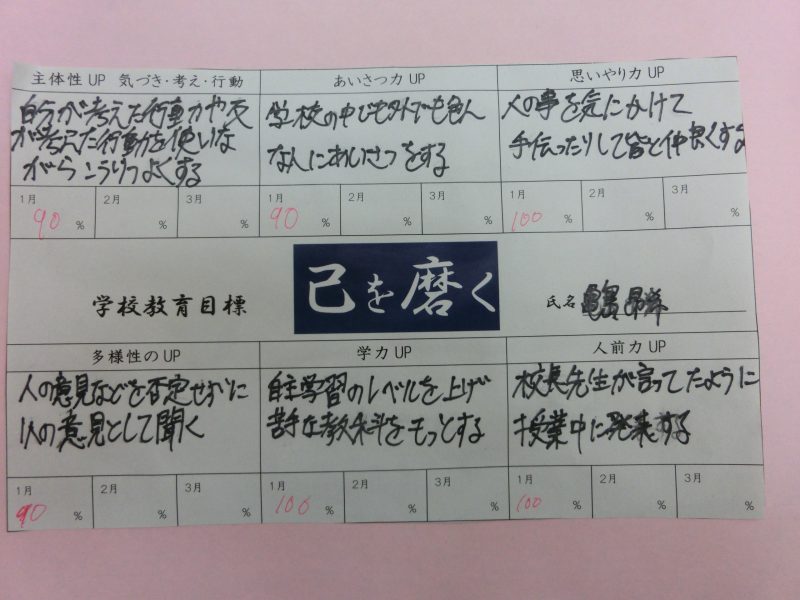 主体性 UP 気づき・考え・行動
自分が考えた行動力や友
が考えた行動を使いな
がら こうりつよくする
1月 90 % 2月 % 3月 %
あいさつ力 UP
学校の中でも外でも色ん
な人にあいさつをする
1月 90 % 2月 % 3月 %
思いやり力 UP
人の事を気にかけて
手伝ったりして皆と仲良くする
1月 100 % 2月 % 3月 %
学校教育目標
己を磨く
氏名
多様性のUP
人の意見などを否定せずに
1人の意見として聞く
1月 90 % 2月 % 3月 %
学力 UP
自主学習のレベルを上げ
苦手な教科をもっとする
1月 100 % 2月 % 3月 %
人前力 UP
校長先生が言ってたように
授業中に発表する
1月 100 % 2月 % 3月 %